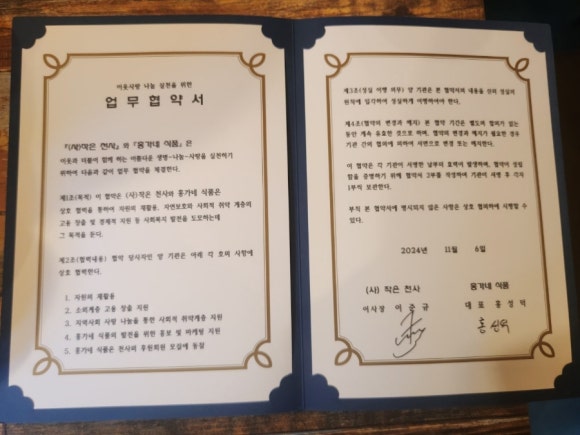 이웃사랑 나눔 실천을 위한
업 무 협 약 서
『(사)작은 천사』와 『홍가네 식품』은
이웃과 더불어 함께 하는 아름다운 생명-나눔-사랑을 실천하기
위하여 다음과 같이 업무 협약을 체결한다.
제1조(목적) 이 협약은 (사)작은 천사와 홍가네 식품은
상호 협력을 통하여 자원의 재활용, 자연보호와 사회적 취약 계층의
고용 창출 및 경제적 지원 등 사회복지 발전을 도모하는데
그 목적을 둔다.
제2조(협력내용) 협약 당사자인 양 기관은 아래 각 호의 사항에
상호 협력한다.
1. 자원의 재활용
2. 소외계층 고용 창출 지원
3. 지역사회 사랑 나눔을 통한 사회적 취약계층 지원
4. 홍가네 식품의 발전을 위한 홍보 및 마케팅 지원
5. 홍가네 식품은 천사의 후원회원 모집에 동참
제3조(성실 이행 의무) 양 기관은 본 협약서의 내용을 신의 성실의
원칙에 입각하여 성실하게 이행하여야 한다.
제4조(협약의 변경과 해지) 본 협약 기간은 별도의 합의가 없는
동안 계속 유효한 것으로 하며, 협약의 변경과 해지가 필요한 경우
기관 간의 협의에 의하여 서면으로 변경 또는 해지한다.
이 협약은 각 기관이 서명한 날부터 효력이 발생하며, 협약이 성립
함을 증명하기 위해 협약서 2부를 작성하여 기관이 서명 후 각각
1부씩 보관한다.
부칙 본 협약서에 명시되지 않은 사항은 상호 협의하에 시행할 수
있다.
2024년 11월 6일
(사) 작은 천사 홍가네 식품
이사장 이 준 규 대 표 홍 성 벽